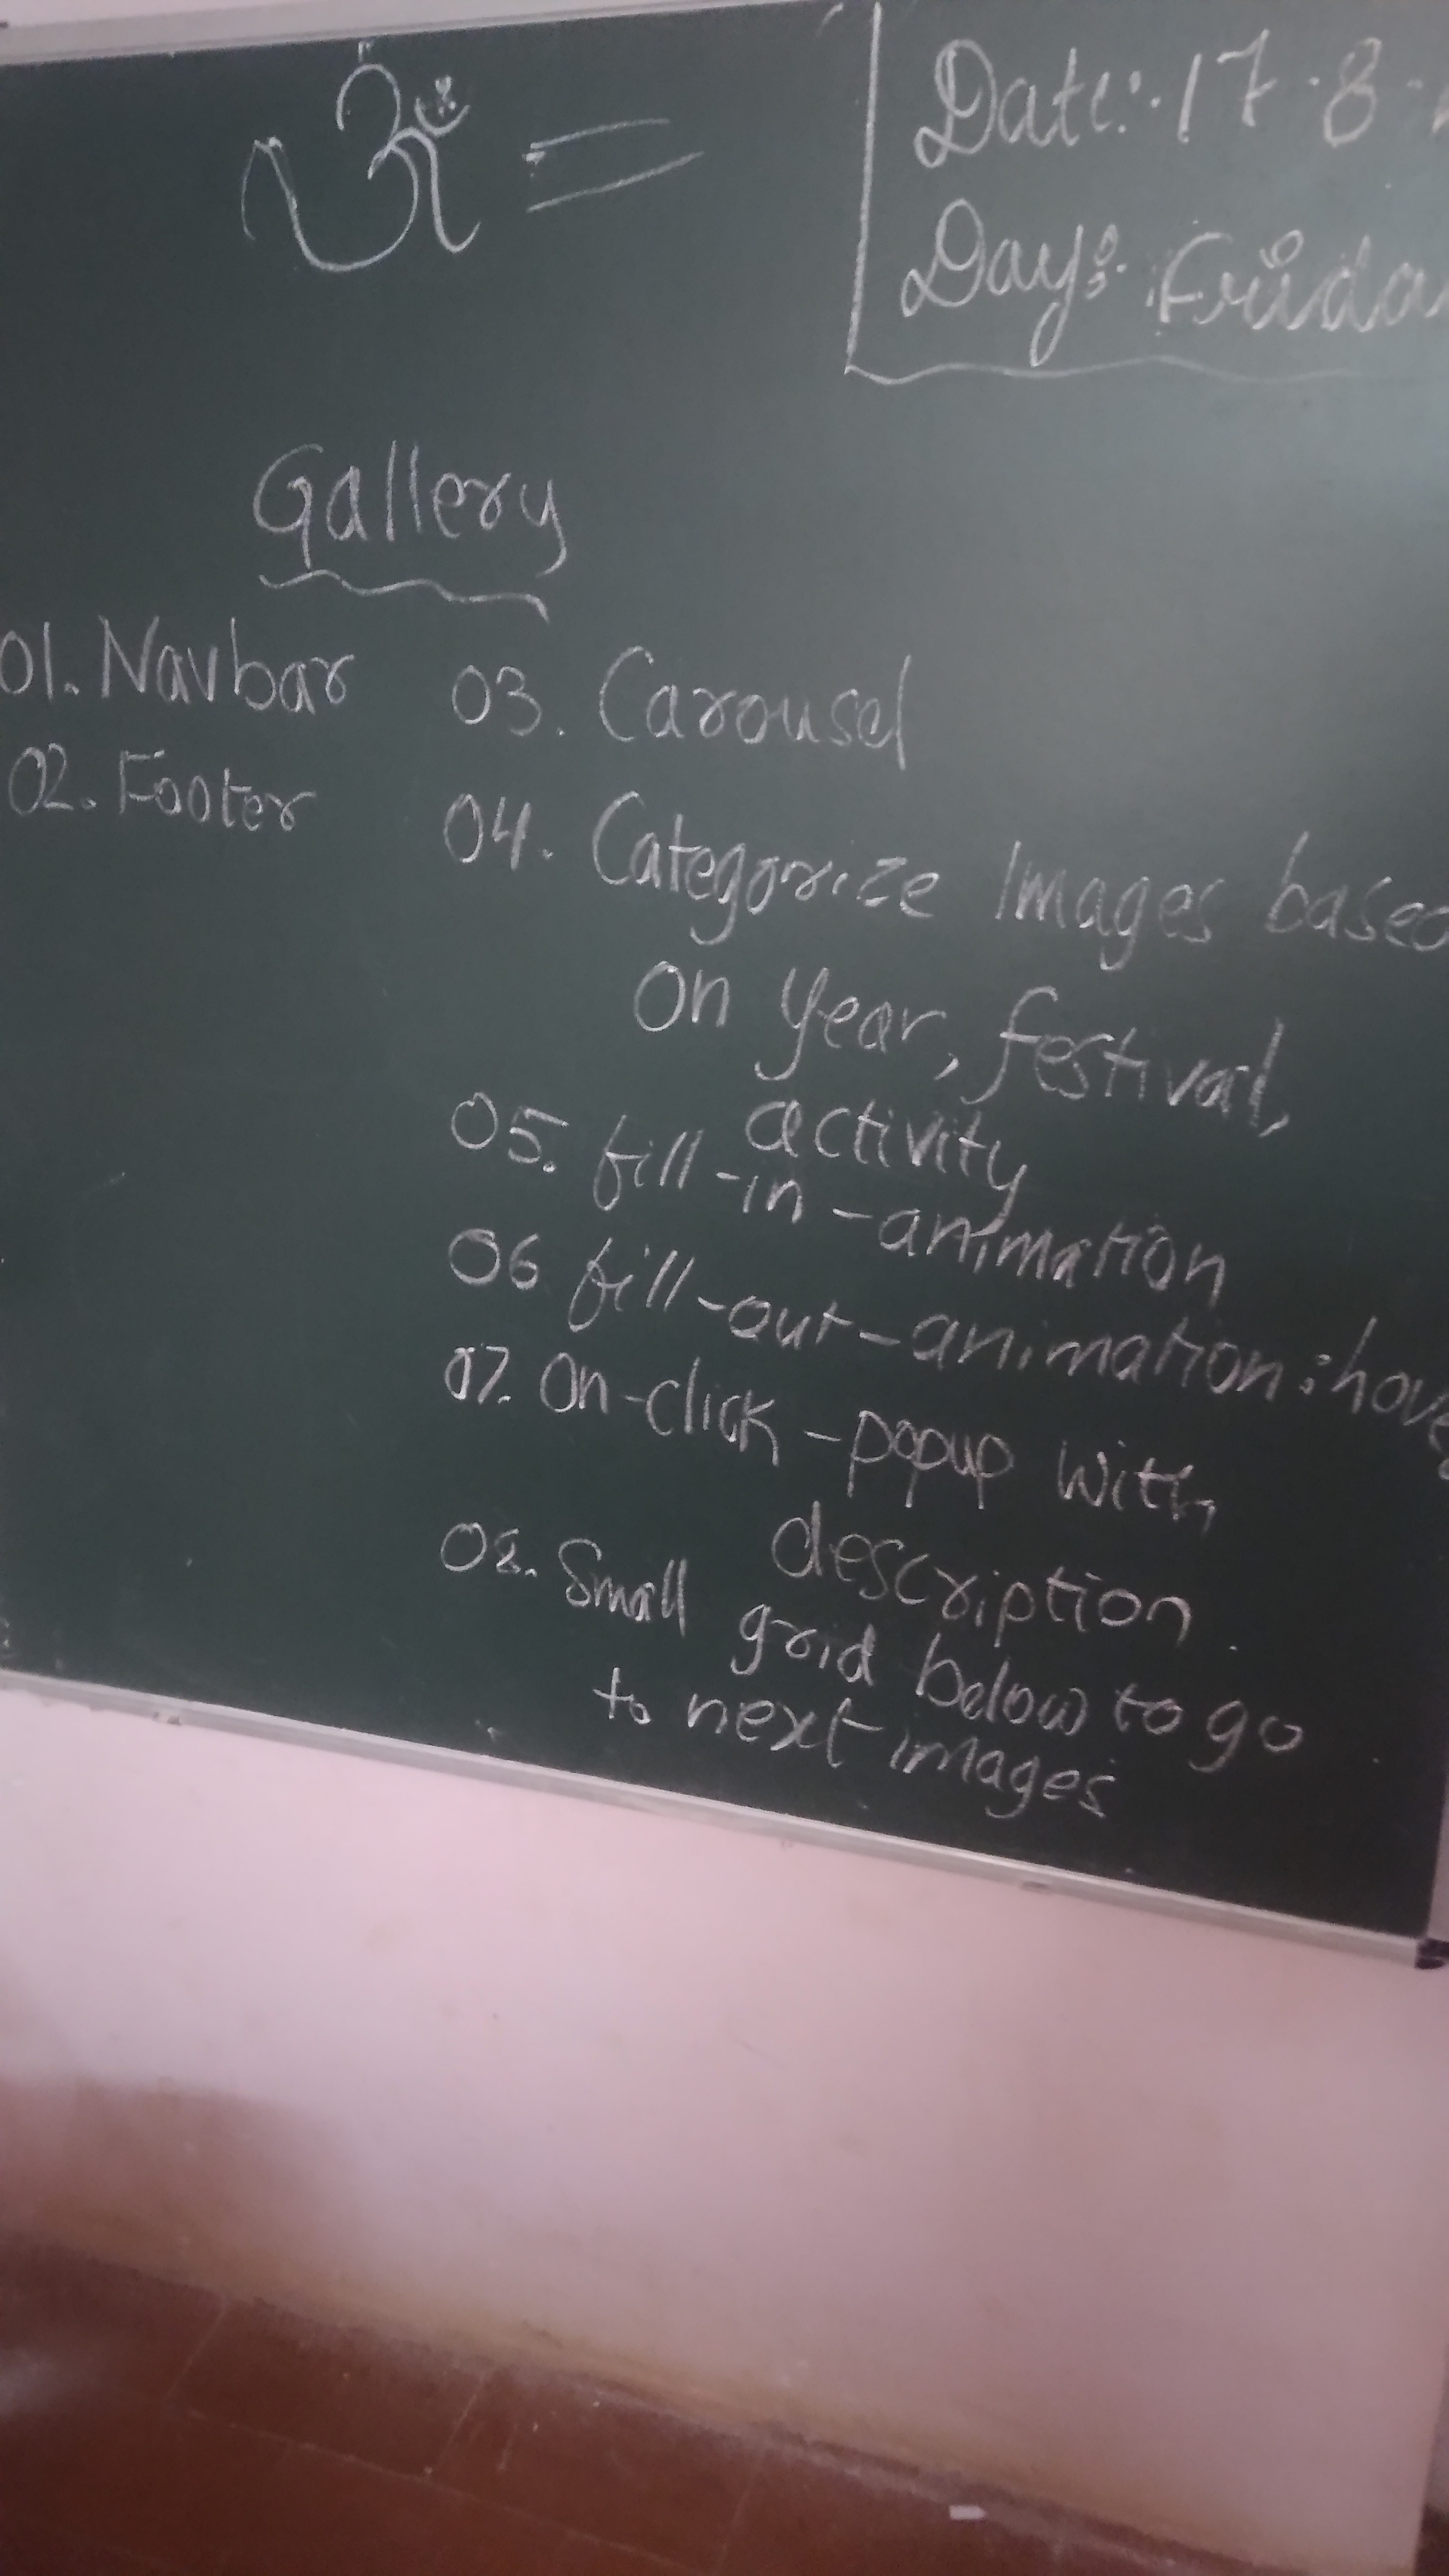 ॐ =
Date:- 17.8.
Day:- Frida
Gallery
01. Navbar
02. Footer
03. Carousel
04. Categorize Images based
on year, festival,
activity
05. fill-in-animation
06 fill-out-animation:hove
07. On-click-popup with
description.
08. Small grid below to go
to next images